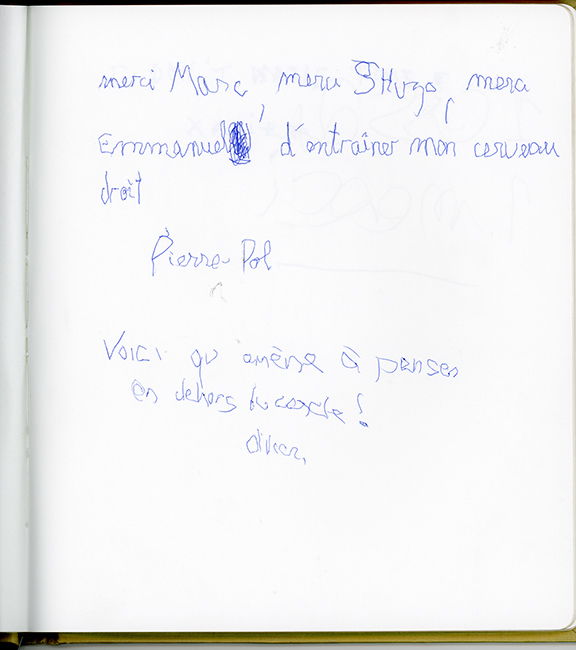 merci Marc, merci Hugo, merci
Emmanuel d'entraîner mon cerveau
droit
Pierre Pol
Voici qu' amène à penser
en dehors du cercle !
Olivier,